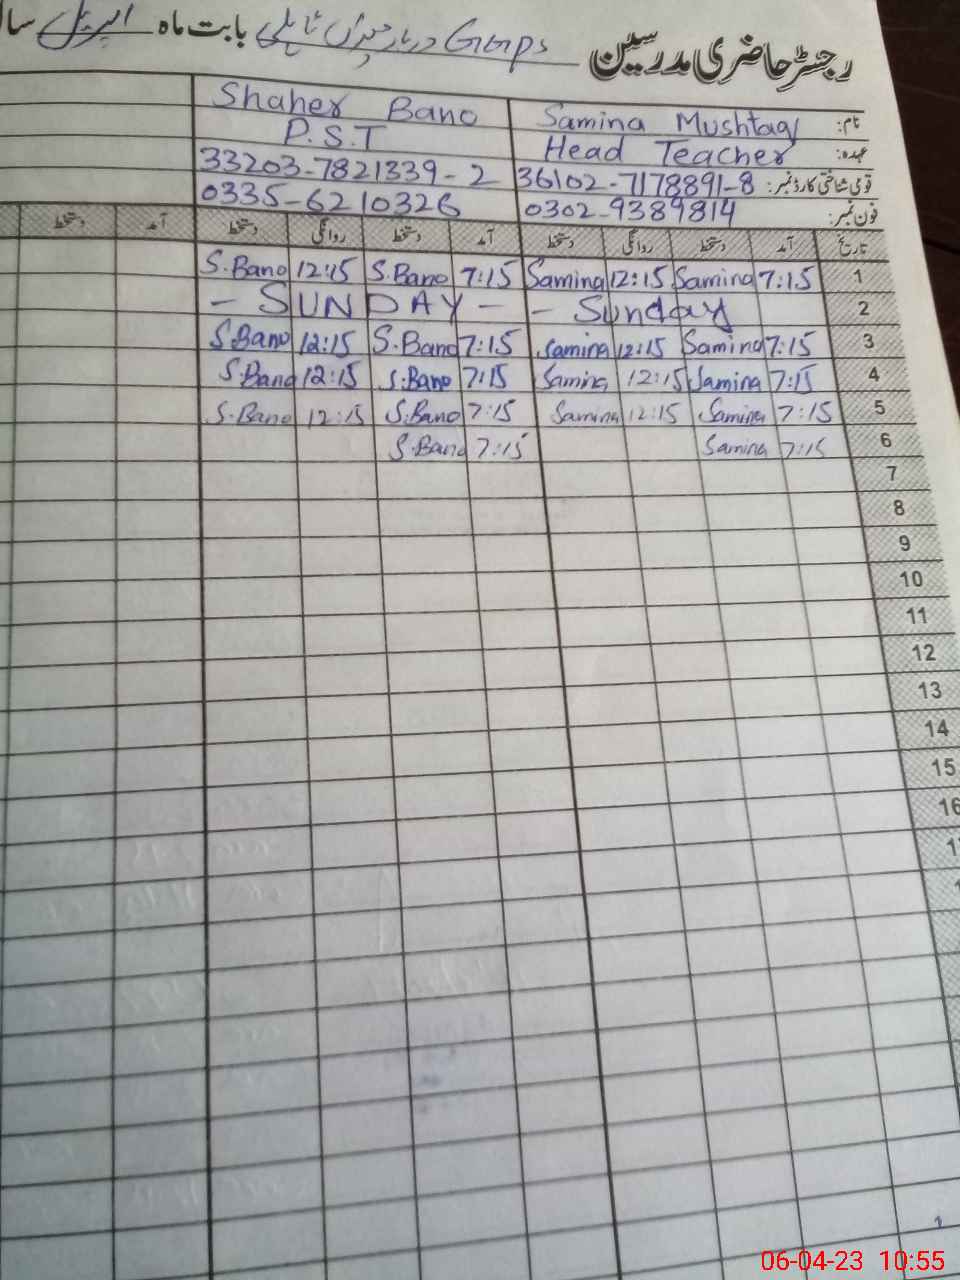 رجسٹر حاضری مدرسین GGPS دربار بابت ماہ اپریل
نام: Samina Mushtaq Shaher Bano
عہدہ: Head Teacher P.S.T
قومی شناختی کارڈ نمبر: 36102-7178891-8 33203-7821339-2
فون نمبر: 0302-9389814 0335-6210326
تاریخ آمد دستخط روانگی دستخط آمد دستخط روانگی دستخط آمد دستخط
1 7:15 Samina 12:15 Samina 7:15 S.Bano 12:15 S.Bano
2 - Sunday - SUNDAY -
3 7:15 Samina 12:15 Samina 7:15 S.Bano 12:15 S.Bano
4 7:15 Samina 12:15 Samina 7:15 S.Bano 12:15 S.Bano
5 7:15 Samina 12:15 Samina 7:15 S.Bano 12:15 S.Bano
6 7:15 Samina 7:15 S.Bano
7
8
9
10
11
12
13
14
15
16
06-04-23 10:55